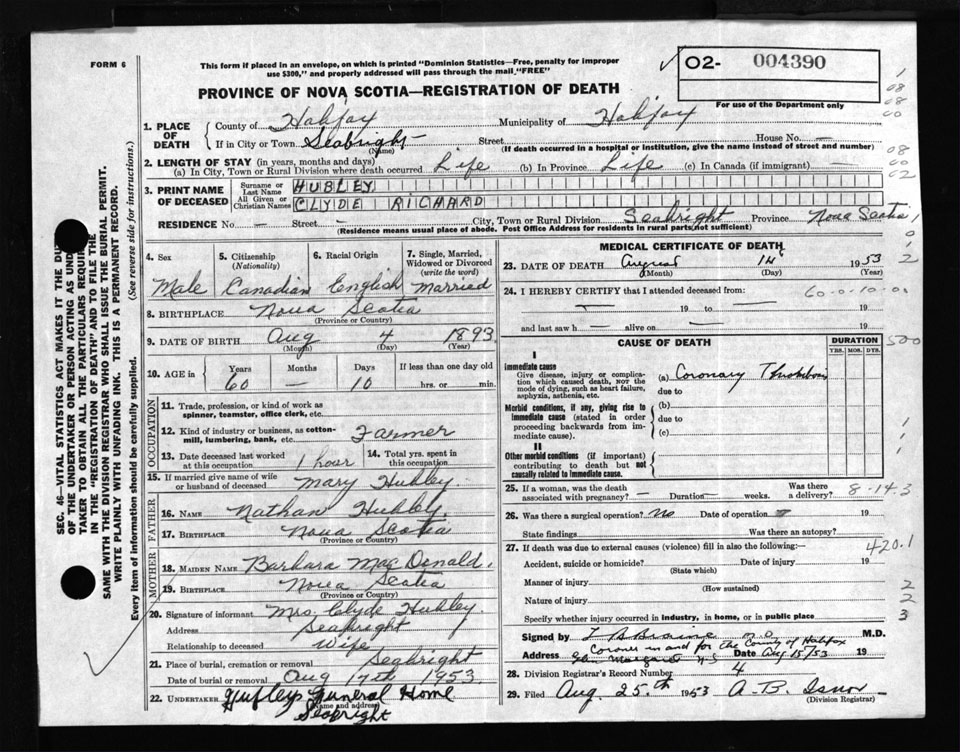 FORM 6
This form if placed in an envelope, on which is printed "Dominion Statistics—Free, penalty for improper
use $300," and properly addressed will pass through the mail "FREE"
O2- 004390
For use of the Department only
PROVINCE OF NOVA SCOTIA—REGISTRATION OF DEATH
1. PLACE OF DEATH
County of Halifax Municipality of Halifax
If in City or Town Seabright Street House No. —
(Name) (If death occurred in a hospital or institution, give the name instead of street and number)
2. LENGTH OF STAY (in years, months and days)
(a) In City, Town or Rural Division where death occurred Life (b) In Province Life (c) In Canada (if immigrant) —
3. PRINT NAME OF DECEASED
Surname or Last Name HUBLEY
All Given or Christian Names CLYDE RICHARD
RESIDENCE No. — Street — City, Town or Rural Division Seabright Province Nova Scotia
(Residence means usual place of abode. Post Office Address for residents in rural parts not sufficient)
4. Sex Male
5. Citizenship (Nationality) Canadian
6. Racial Origin English
7. Single, Married, Widowed or Divorced (write the word) Married
8. BIRTHPLACE Nova Scotia
(Province or Country)
9. DATE OF BIRTH Aug 4 1893
(Month) (Day) (Year)
10. AGE in Years 60 Months — Days 10 If less than one day old hrs. or min.
OCCUPATION
11. Trade, profession, or kind of work as spinner, teamster, office clerk, etc.
12. Kind of industry or business, as cotton-mill, lumbering, bank, etc. Farmer
13. Date deceased last worked at this occupation 1 hour
14. Total yrs. spent in this occupation
15. If married give name of wife or husband of deceased Mary Hubley
FATHER
16. NAME Nathan Hubley
17. BIRTHPLACE Nova Scotia
(Province or Country)
MOTHER
18. MAIDEN NAME Barbara MacDonald.
19. BIRTHPLACE Nova Scotia
(Province or Country)
20. Signature of informant Mrs. Clyde Hubley.
Address Seabright
Relationship to deceased Wife
21. Place of burial, cremation or removal Seabright
Date of burial or removal Aug 17th 1953.
22. UNDERTAKER Funeral Home
(Name and address)
Seabright
MEDICAL CERTIFICATE OF DEATH
23. DATE OF DEATH August 14 1953
(Month) (Day) (Year)
24. I HEREBY CERTIFY that I attended deceased from:
60-0-10-0
— 19 to — 19
and last saw h — alive on — 19
CAUSE OF DEATH
DURATION
YRS. MOS. DYS.
I
Immediate cause
Give disease, injury or complication which caused death, NOT the mode of dying, such as heart failure, asphyxia, asthenia, etc.
(a) Coronary Thrombosis
due to
Morbid conditions, if any, giving rise to immediate cause (stated in order proceeding backwards from immediate cause).
(b)
due to
(c)
II
Other morbid conditions (if important) contributing to death but not causally related to immediate cause.
25. If a woman, was the death associated with pregnancy? — Duration — weeks. Was there a delivery?
8-14-3
26. Was there a surgical operation? No Date of operation 19
State findings Was there an autopsy?
27. If death was due to external causes (violence) fill in also the following:—
420.1
Accident, suicide or homicide? Date of injury 19
(State which)
Manner of injury
(How sustained)
Nature of injury
Specify whether injury occurred in industry, in home, or in public place
Signed by M.D.
Coroner in and for the County of Halifax
Address Glen Margaret N.S Date Aug 15/53 19
28. Division Registrar's Record Number 4
29. Filed Aug. 25th 1953 A.B. Isnor
(Division Registrar)
SEC. 46—VITAL STATISTICS ACT MAKES IT THE
OF THE UNDERTAKER OR PERSON ACTING AS
TAKER TO OBTAIN ALL THE PARTICULARS
IN THE "REGISTRATION OF DEATH" AND TO FILE THE
SAME WITH THE DIVISION REGISTRAR WHO SHALL ISSUE THE BURIAL PERMIT.
WRITE PLAINLY WITH UNFADING INK. THIS IS A PERMANENT RECORD.
Every item of information should be carefully supplied. (See reverse side for instructions.)